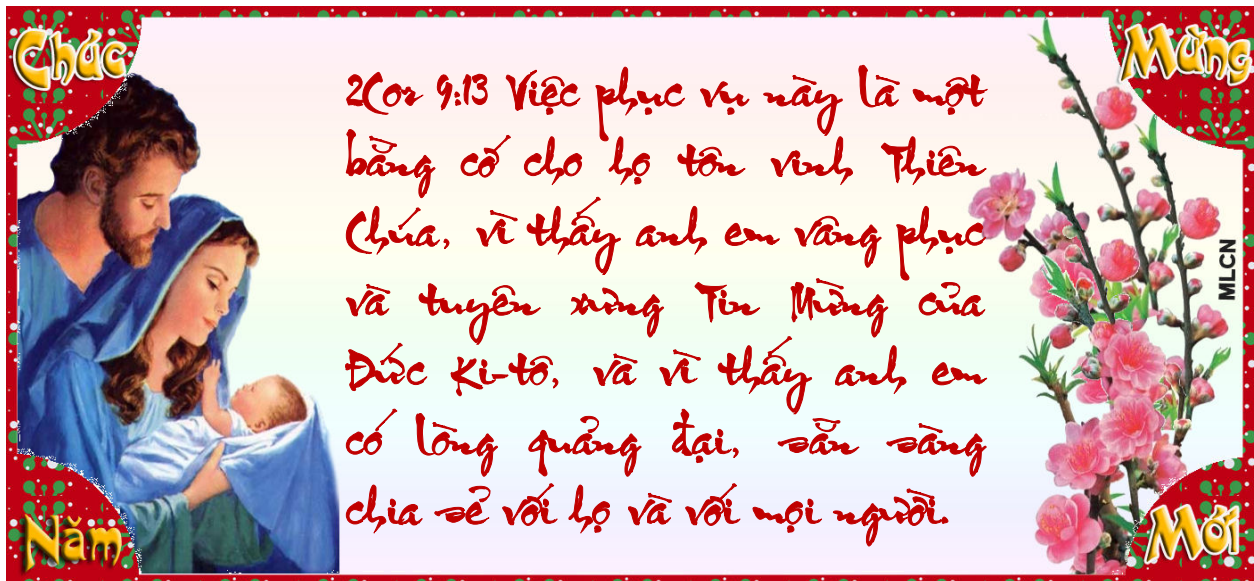 Chúc
Mừng
2Cor 9:13 Việc phục vụ này là một
bằng cớ cho họ tôn vinh Thiên
Chúa, vì thấy anh em vâng phục
và tuyên xưng Tin Mừng của
Đức Ki-tô, và vì thấy anh em
có lòng quảng đại, sẵn sàng
chia sẻ với họ và với mọi người.
MLCN
Năm
Mới